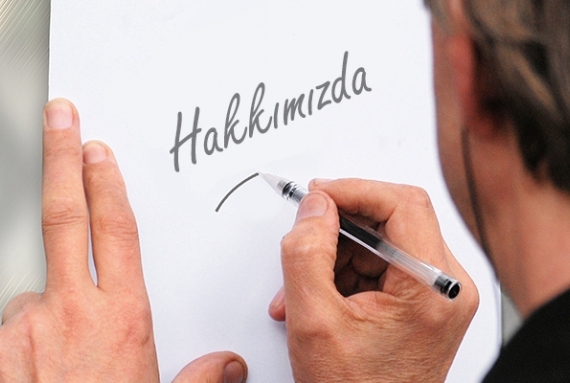 Hakkımızda